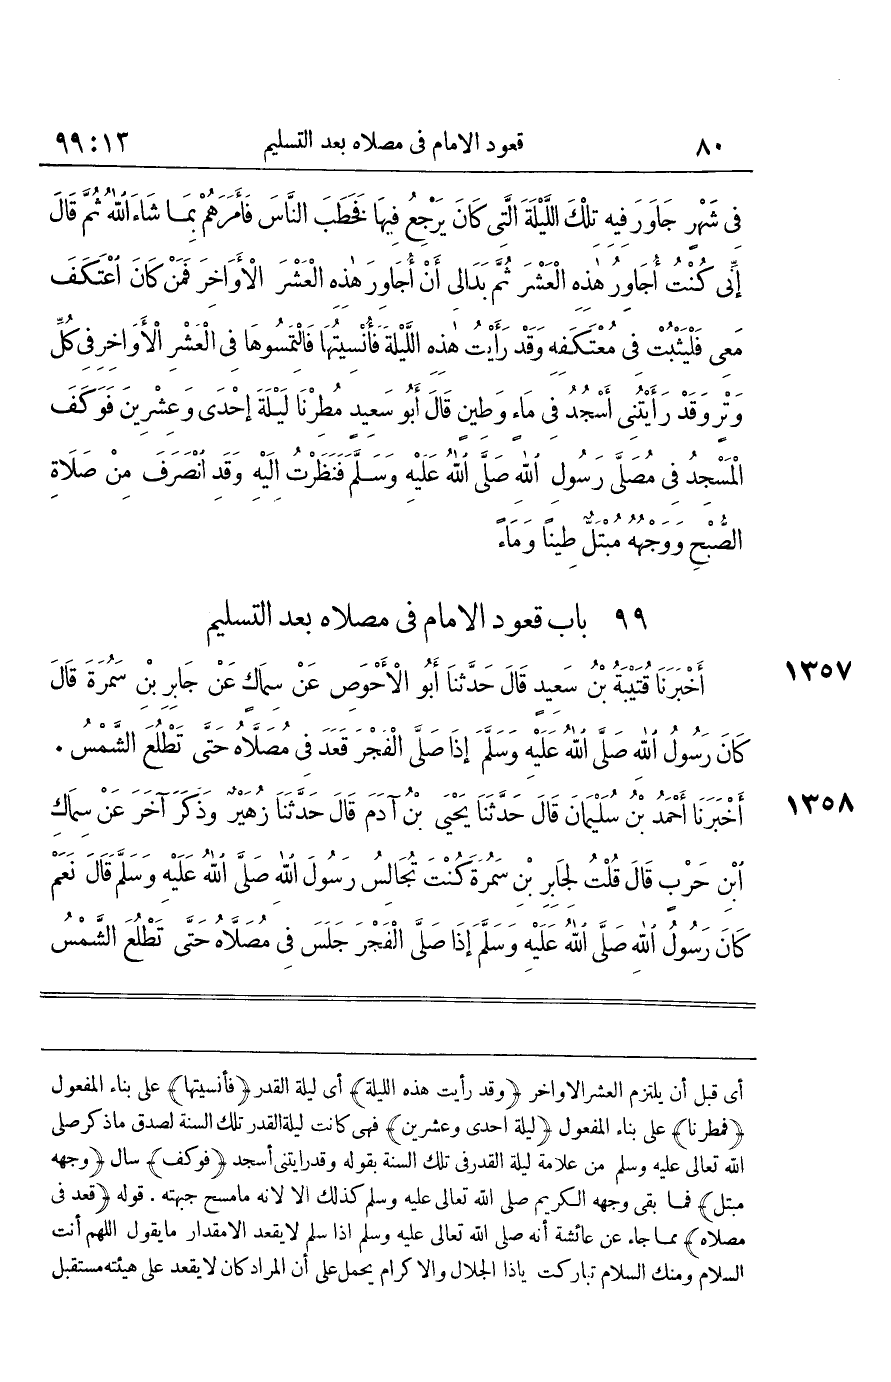 ٨٠ قعود الامام فى مصلاه بعد التسليم ١٣:٩٩
فِى شَهْرٍ جَاوَرَ فِيهِ تِلْكَ اللَّيْلَةَ الَّتِى كَانَ يَرْجِعُ فِيهَا فَخَطَبَ النَّاسَ فَأَمَرَهُمْ بِمَا شَاءَ اللهُ ثُمَّ قَالَ
إِنِّى كُنْتُ أُجَاوِرُ هٰذِهِ الْعَشْرَ ثُمَّ بَدَالِى أَنْ أُجَاوِرَ هٰذِهِ الْعَشْرَ الْأَوَاخِرَ فَمَنْ كَانَ اعْتَكَفَ
مَعِى فَلْيَثْبُتْ فِى مُعْتَكَفِهِ وَقَدْ رَأَيْتُ هٰذِهِ اللَّيْلَةَ فَأُنْسِيتُهَا فَالْتَمِسُوهَا فِى الْعَشْرِ الْأَوَاخِرِ فِى كُلِّ
وَتْرٍ وَقَدْ رَأَيْتُنِى أَسْجُدُ فِى مَاءٍ وَطِينٍ قَالَ أَبُو سَعِيدٍ مُطِرْنَا لَيْلَةَ إِحْدَى وَعِشْرِينَ فَوَكَفَ
الْمَسْجِدُ فِى مُصَلَّى رَسُولِ اللهِ صَلَّى اللهُ عَلَيْهِ وَسَلَّمَ فَنَظَرْتُ إِلَيْهِ وَقَدِ انْصَرَفَ مِنْ صَلَاةِ
الصُّبْحِ وَوَجْهُهُ مُبْتَلٌّ طِينًا وَمَاءً
٩٩ باب قعود الامام فى مصلاه بعد التسليم
١٣٥٧ أَخْبَرَنَا قُتَيْبَةُ بْنُ سَعِيدٍ قَالَ حَدَّثَنَا أَبُو الْأَحْوَصِ عَنْ سِمَاكٍ عَنْ جَابِرِ بْنِ سَمُرَةَ قَالَ
كَانَ رَسُولُ اللهِ صَلَّى اللهُ عَلَيْهِ وَسَلَّمَ إِذَا صَلَّى الْفَجْرَ قَعَدَ فِى مُصَلَّاهُ حَتَّى تَطْلُعَ الشَّمْسُ .
١٣٥٨ أَخْبَرَنَا أَحْمَدُ بْنُ سُلَيْمَانَ قَالَ حَدَّثَنَا يَحْيَى بْنُ آدَمَ قَالَ حَدَّثَنَا زُهَيْرٌ وَذَكَرَ آخَرَ عَنْ سِمَاكِ
ابْنِ حَرْبٍ قَالَ قُلْتُ لِجَابِرِ بْنِ سَمُرَةَ كُنْتَ تُجَالِسُ رَسُولَ اللهِ صَلَّى اللهُ عَلَيْهِ وَسَلَّمَ قَالَ نَعَمْ
كَانَ رَسُولُ اللهِ صَلَّى اللهُ عَلَيْهِ وَسَلَّمَ إِذَا صَلَّى الْفَجْرَ جَلَسَ فِى مُصَلَّاهُ حَتَّى تَطْلُعَ الشَّمْسُ
أى قبل أن يلتزم العشر الاواخر ﴿وقد رأيت هذه الليلة﴾ أى ليلة القدر ﴿فأنسيتها﴾ على بناء المفعول
﴿فمطرنا﴾ على بناء المفعول ﴿ليلة احدى وعشرين﴾ فهى كانت ليلة القدر تلك السنة لصدق ماذكر صلى
الله تعالى عليه وسلم من علامة ليلة القدر فى تلك السنة بقوله وقد رايتنى أسجد ﴿فوكف﴾ سال ﴿وجهه
مبتل﴾ فما بقى وجهه الكريم صلى الله تعالى عليه وسلم كذلك الا لانه مامسح جبهته . قوله ﴿قعد فى
مصلاه﴾ مما جاء عن عائشة أنه صلى الله تعالى عليه وسلم اذا سلم لايقعد الامقدار مايقول اللهم أنت
السلام ومنك السلام تباركت ياذا الجلال والاكرام يحمل على أن المراد كان لايقعد على هيئته مستقبل